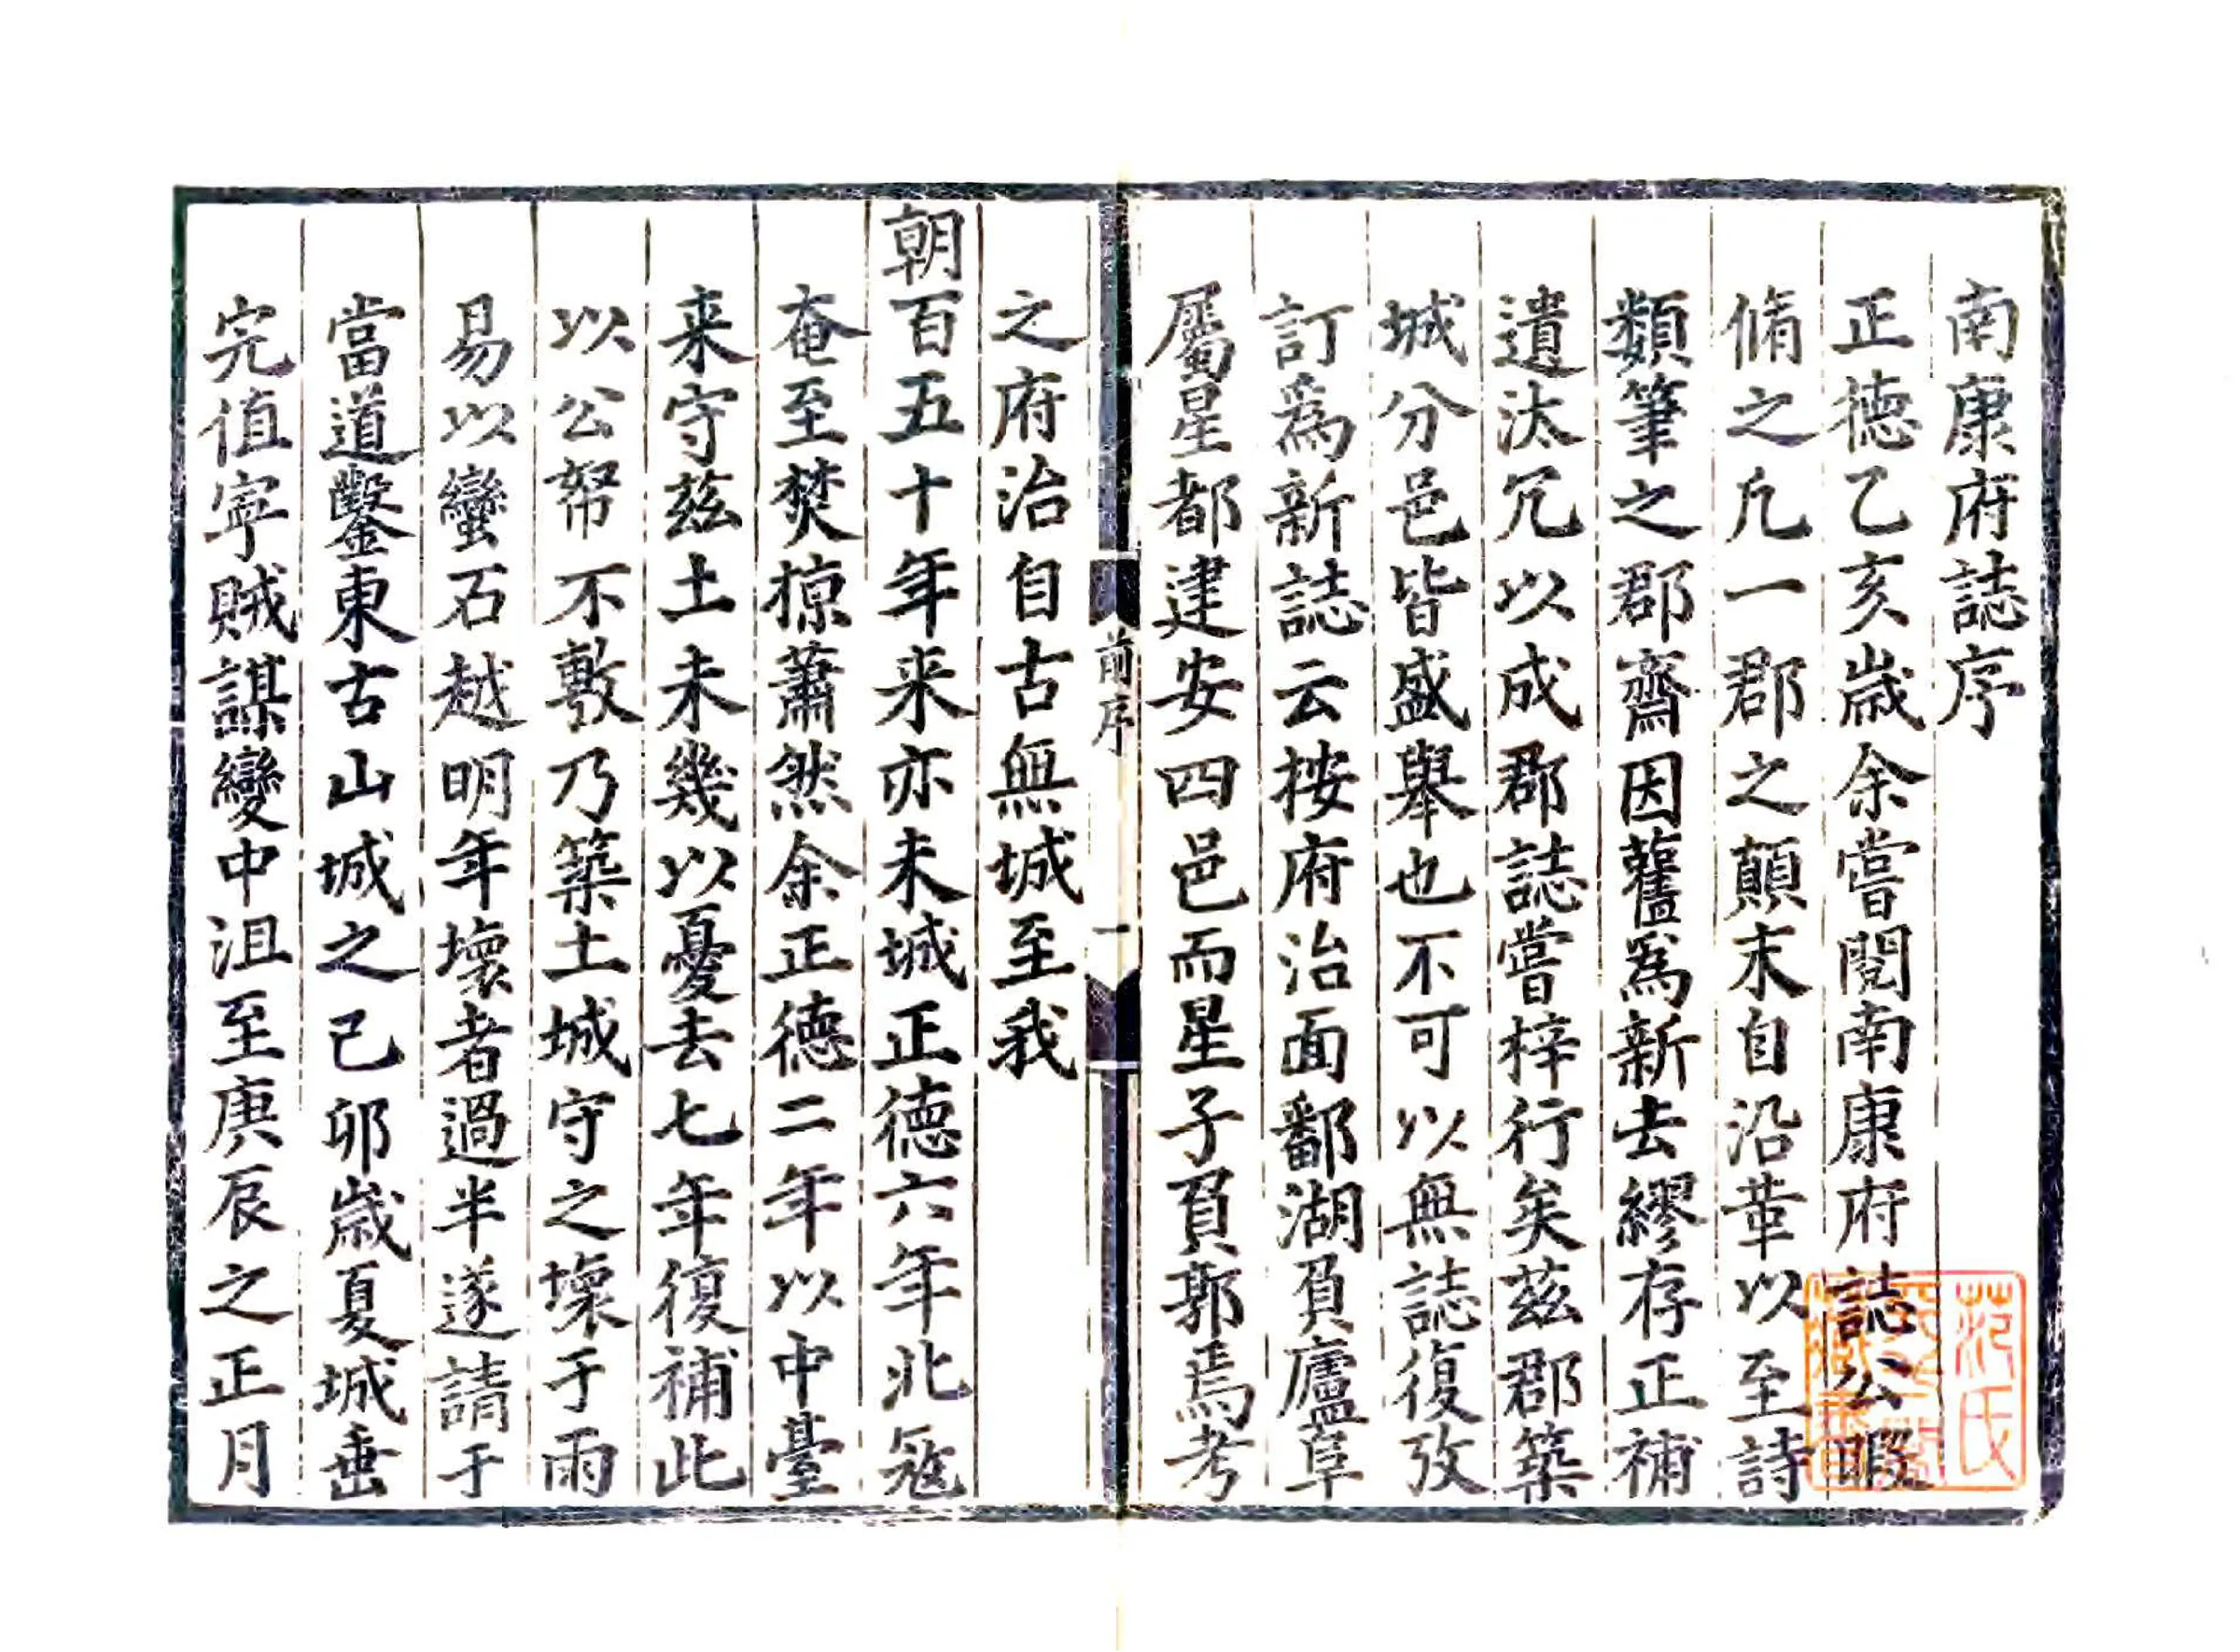 南康府誌序
正德乙亥歲余嘗閱南康府誌公暇
脩之凢一郡之顛末自沿革以至詩
類筆之郡齋因舊爲新去繆存正補
遺汰冗以成郡誌嘗梓行矣茲郡築
城分邑皆盛舉也不可以無誌復攷
訂爲新誌云按府治面鄱湖負廬阜
屬星都建安四邑而星子負郭焉考
前序
一
之府治自古無城至我
朝百五十年来亦未城正德六年北寇
奄至焚掠蕭然余正德二年以中臺
来守茲土未幾以憂去七年復補此
以公帑不敷乃築土城守之壞于雨
易以蠻石越明年壞者過半遂請于
當道鑿東古山城之己卯歲夏城垂
完值寧賊謀變中沮至庚辰之正月
范氏